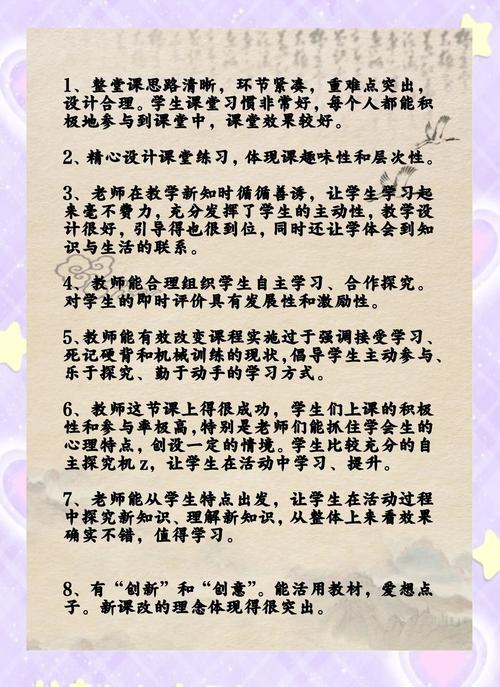 1、整堂课思路清晰，环节紧凑，重难点突出，
设计合理。学生课堂习惯非常好，每个人都能积
极地参与到课堂中，课堂效果较好。
2、精心设计课堂练习，体现课趣味性和层次性。
3、老师在教学新知时循循善诱，让学生学习起
来毫不费力，充分发挥了学生的主动性，教学设
计很好，引导得也很到位，同时还让学体会到知
识与生活的联系。
4、教师能合理组织学生自主学习、合作探究。
对学生的即时评价具有发展性和激励性。
5、教师能有效改变课程实施过于强调接受学习、
死记硬背和机械训练的现状，倡导学生主动参与、
乐于探究、勤于动手的学习方式。
6、教师这节课上得很成功，学生们上课的积极
性和参与率极高，特别是老师们能抓住学会生的
心理特点，创设一定的情境。学生比较充分的自
主探究机z，让学生在活动中学习、提升。
7、老师能从学生特点出发，让学生在活动过程
中探究新知识、理解新知识，从整体上来看效果
确实不错，值得学习。
8、有“创新”和“创意”。能活用教材，爱想点
子。新课改的理念体现得很突出。